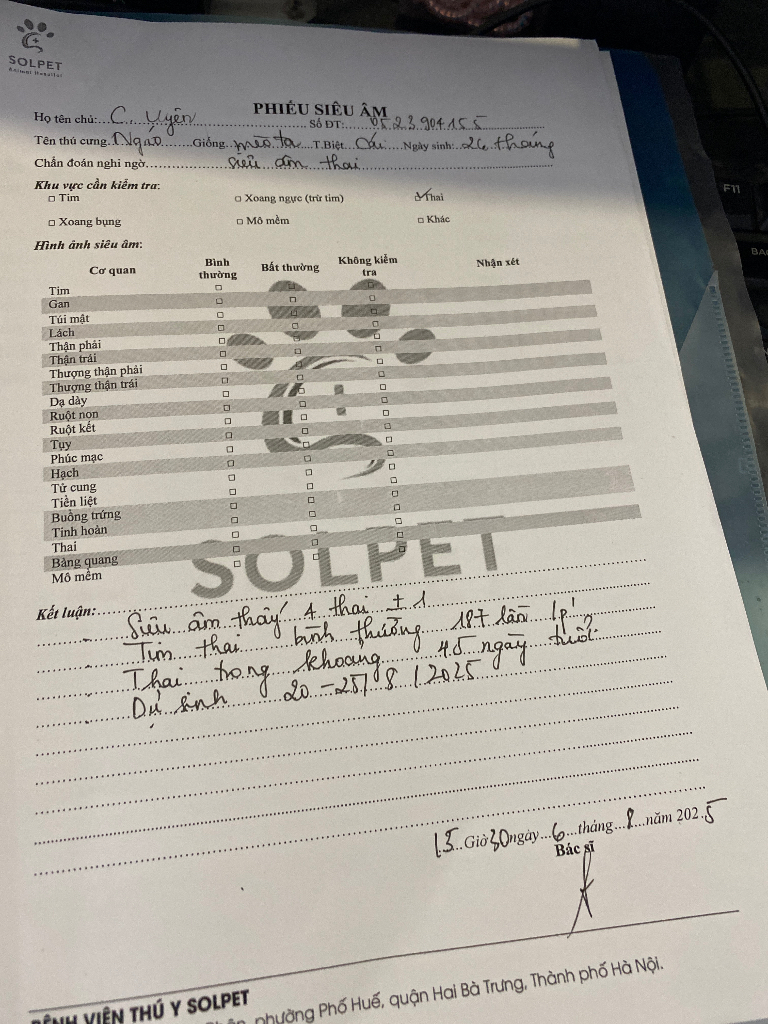 SOLPET
Animal Hospital
PHIẾU SIÊU ÂM
Họ tên chủ: C. Uyên Số ĐT: 0523904155
Tên thú cưng: Ngáo Giống mèo ta T.Biệt Cái Ngày sinh: 24 tháng
Chẩn đoán nghi ngờ siêu âm thai
Khu vực cần kiểm tra:
Tim Xoang ngực (trừ tim) Thai
Xoang bụng Mô mềm Khác
Hình ảnh siêu âm:
Cơ quan Bình thường Bất thường Không kiểm tra Nhận xét
Tim
Gan
Túi mật
Lách
Thận phải
Thận trái
Thượng thận phải
Thượng thận trái
Dạ dày
Ruột non
Ruột kết
Tụy
Phúc mạc
Hạch
Tử cung
Tiền liệt
Buồng trứng
Tinh hoàn
Thai
Bàng quang
Mô mềm
SOLPET
Kết luận:
- Siêu âm thấy 4 thai ± 1
- Tim thai bình thường 187 lần /p'
- Thai trong khoảng 45 ngày tuổi
- Dự sinh 20 - 25/8/2025
15 Giờ 30 ngày 6 tháng 8 năm 2025
Bác sĩ
BỆNH VIỆN THÚ Y SOLPET
phường Phố Huế, quận Hai Bà Trưng, Thành phố Hà Nội.
F11